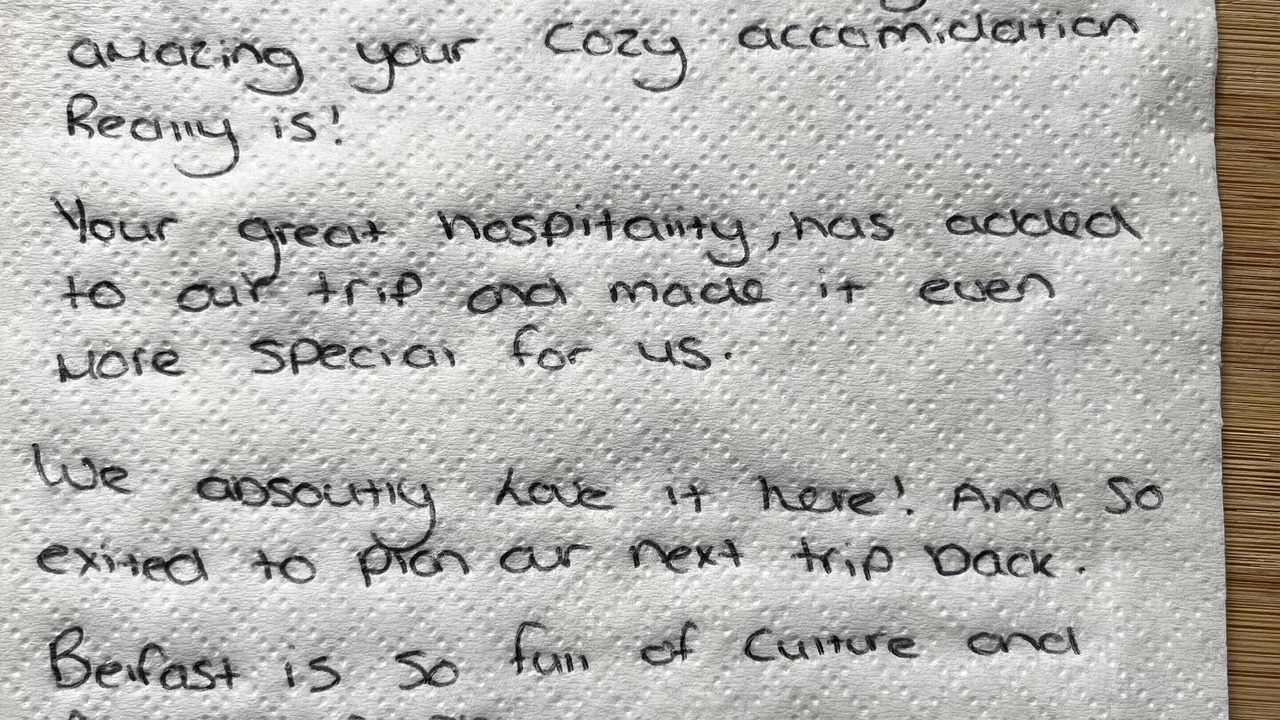 amazing your cozy accomidation
Really is!
Your great hospitality, has added
to our trip and made it even
more special for us.
We absoutly love it here! And so
exited to plan our next trip back.
Belfast is so full of culture and